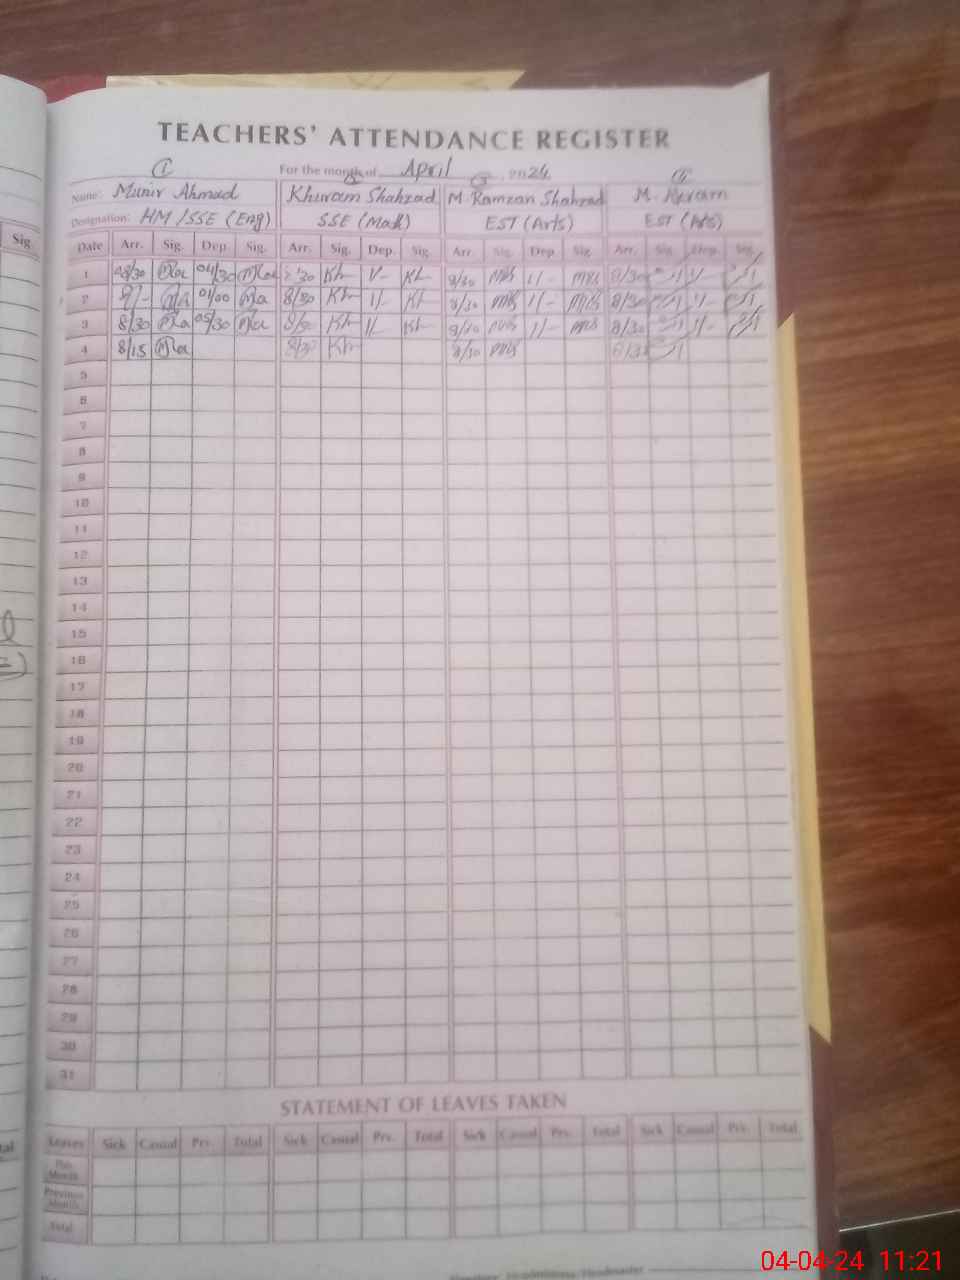 TEACHERS' ATTENDANCE REGISTER
For the month of April 2024
Name: Munir Ahmad Khuram Shahzad M. Ramzan Shahzad M. Akram
Designation: HM/SSE (Eng) SSE (Math) EST (Arts) EST (Arts)
Sig.
Date Arr. Sig. Dep. Sig. Arr. Sig. Dep. Sig. Arr. Sig. Dep. Sig. Arr. Sig. Dep. Sig.
1 8/30 04/30 Kh 1/- Kh 8/30 1/- 8/30 1/-
2 9/- 01/00 8/30 Kh 1/- Kh 8/30 1/- 8/30 1/-
3 8/30 05/30 8/30 Kh 1/- Kh 8/30 1/- 8/30 1/-
4 8/15 8/30 Kh 8/30 8/30
5
6
7
8
9
10
11
12
13
14
15
16
17
18
19
20
21
22
23
24
25
26
27
28
29
30
31
STATEMENT OF LEAVES TAKEN
Leaves Sick Casual Prv. Total Sick Casual Prv. Total Sick Casual Prv. Total Sick Casual Prv. Total
This Month
Previous Month
Total
04-04-24 11:21